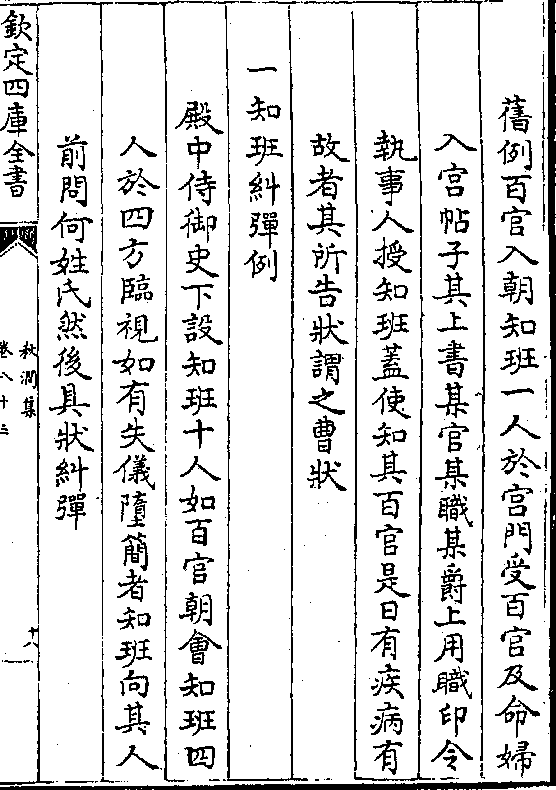 舊例百官入朝知班一人於宫門受百官及命婦
入宫帖子其上書某官某職某爵上用職印令
執事人授知班蓋使知其百官是日有疾病有
故者其所告狀謂之曹狀
一知班糾彈例
殿中侍御史下設知班十人如百官朝會知班四
人於四方臨視如有失儀墮簡者知班向其人
前問何姓氏然後具狀糾彈
欽定四庫全書
秋澗集
卷八十三
十八